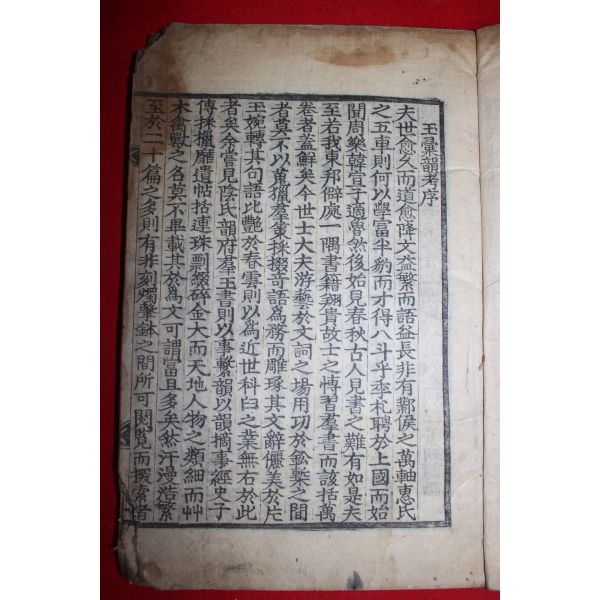 玉彙韻考序
夫世愈久而道愈降文益繁而語益長非有鄴侯之萬軸惠氏
之五車則何以學富半豹而才得八斗乎季札聘於上國而始
聞周樂韓宣子適魯然後始見春秋古人見書之難有如是夫
至若我東邦僻處一隅書籍翔貴故士之愽習羣書而該括萬
卷者蓋鮮矣今世士大夫游藝於文詞之場用功於鉛槧之間
者莫不以蒐獵羣策採掇奇語爲務而雕琢其文辭儷美於片
玉婉轉其句語比艷於春雲則以爲近世科臼之業無右於此
者矣余嘗見陰氏韻府羣玉書則以事繫韻以韻摘事經史子
傳採擸靡遺帖括連珠剽綴碎金大而天地人物之類細而艸
木禽獸之名莫不畢載其於爲文可謂富且多矣然汗漫浩繁
至於二十篇之多則有非刻燭擊鉢之間所可閱覽而揆索者